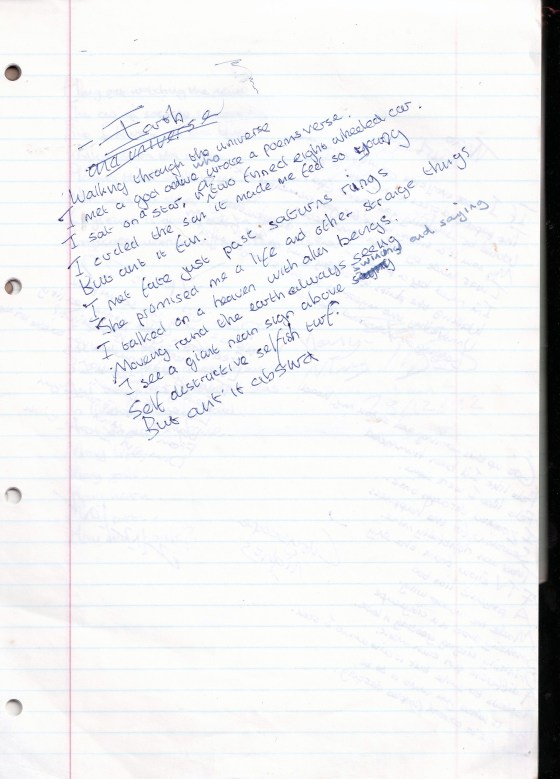 - Earth
and universe
Walking through the universe
I met a god who wrote a poems verse.
I sat on a star, a two finned eight wheeled car.
I circled the sun it made me feel so young
But ant it fun.
I met fate just past saturns rings
She promised me a life and other straige things
I talked on a heaven with alin beings.
Moving round the earth always seeing
I see a giant neon sign above swining and saying
Self destructive selfish turf.
But ant it absurd